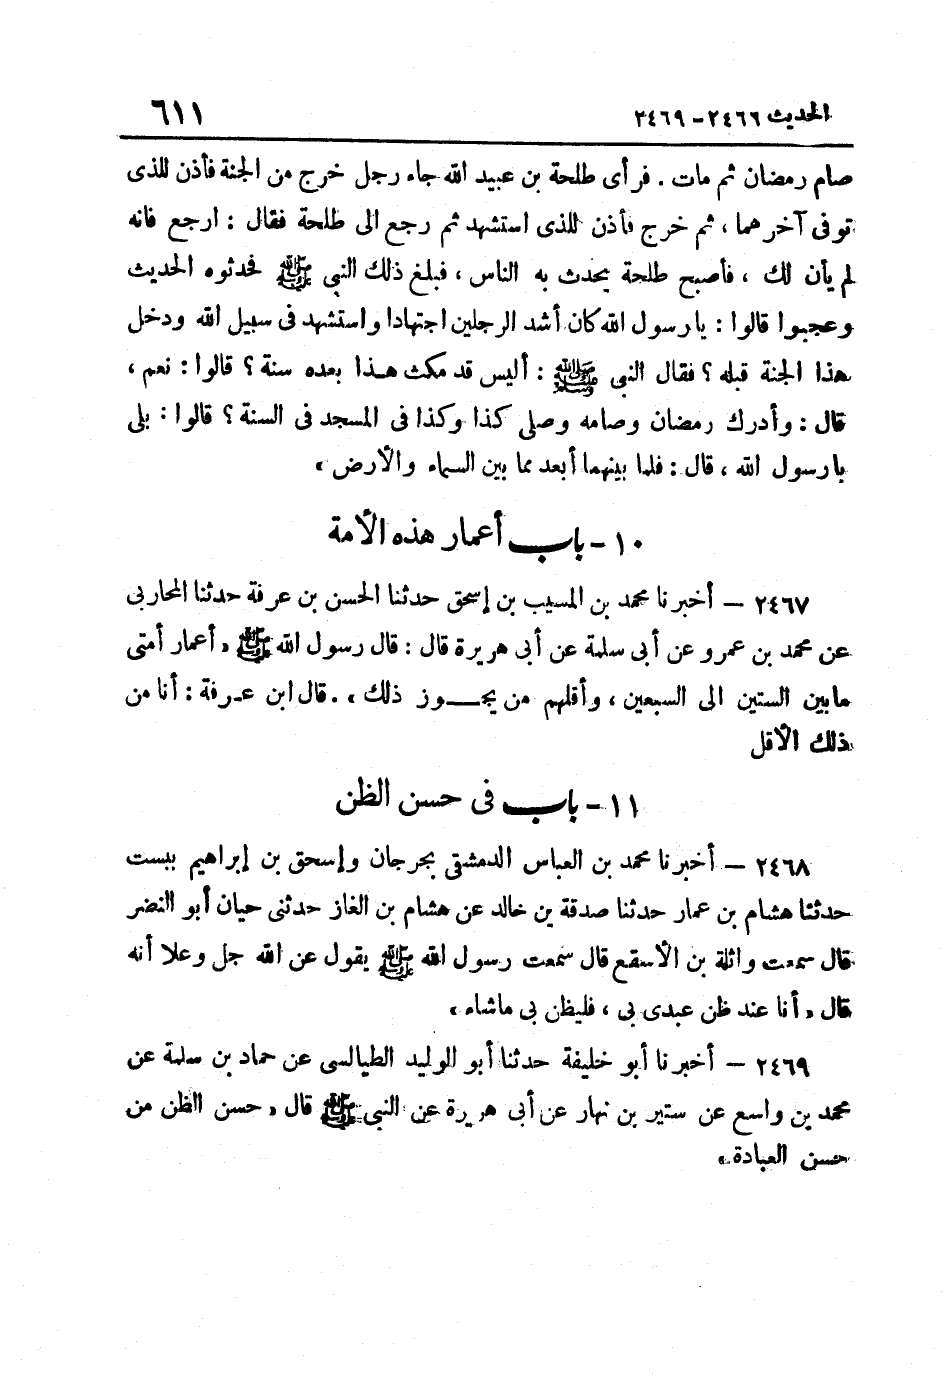 الحديث ٢٤٦٦ - ٢٤٦٩ ٦١١
صام رمضان ثم مات . فرأى طلحة بن عبيد الله جاء رجل خرج من الجنة فأذن للذى
توفى آخرهما ، ثم خرج فأذن للذى استشهد ثم رجع الى طلحة فقال : ارجع فانه
لم يأن لك ، فأصبح طلحة يحدث به الناس ، فبلغ ذلك النبي ﷺ فحدثوه الحديث
وعجبوا قالوا : يارسول الله كان أشد الرجلين اجتهادا واستشهد فى سبيل الله ودخل
هذا الجنة قبله ؟ فقال النبي ﷺ : أليس قد مكث هذا بعده سنة ؟ قالوا : نعم ،
قال : وأدرك رمضان وصامه وصلى كذا وكذا فى المسجد فى السنة ؟ قالوا : بلى
يارسول الله ، قال : فلما بينهما أبعد مما بين السماء والأرض »
١٠ - باب أعمار هذه الأمة
٢٤٦٧ — أخبرنا محمد بن المسيب بن إسحق حدثنا الحسن بن عرفة حدثنا المحاربى
عن محمد بن عمرو عن أبى سلمة عن أبى هريرة قال : قال رسول الله ﷺ « أعمار أمتى
مابين الستين الى السبعين ، وأقلهم من يجوز ذلك » . قال ابن عرفة : أنا من
ذلك الأقل
١١ - باب فى حسن الظن
٢٤٦٨ — أخبرنا محمد بن العباس الدمشقى بجرجان وإسحق بن إبراهيم ببست
حدثنا هشام بن عمار حدثنا صدقة بن خالد عن هشام بن الغاز حدثنى حيان أبو النضر
قال سمعت واثلة بن الأسقع قال سمعت رسول الله ﷺ يقول عن الله جل وعلا أنه
قال « أنا عند ظن عبدى بى ، فليظن بى ماشاء »
٢٤٦٩ — أخبرنا أبو خليفة حدثنا أبو الوليد الطيالسى عن حماد بن سلمة عن
محمد بن واسع عن ستير بن نهار عن أبى هريرة عن النبي ﷺ قال « حسن الظن من
حسن العبادة »